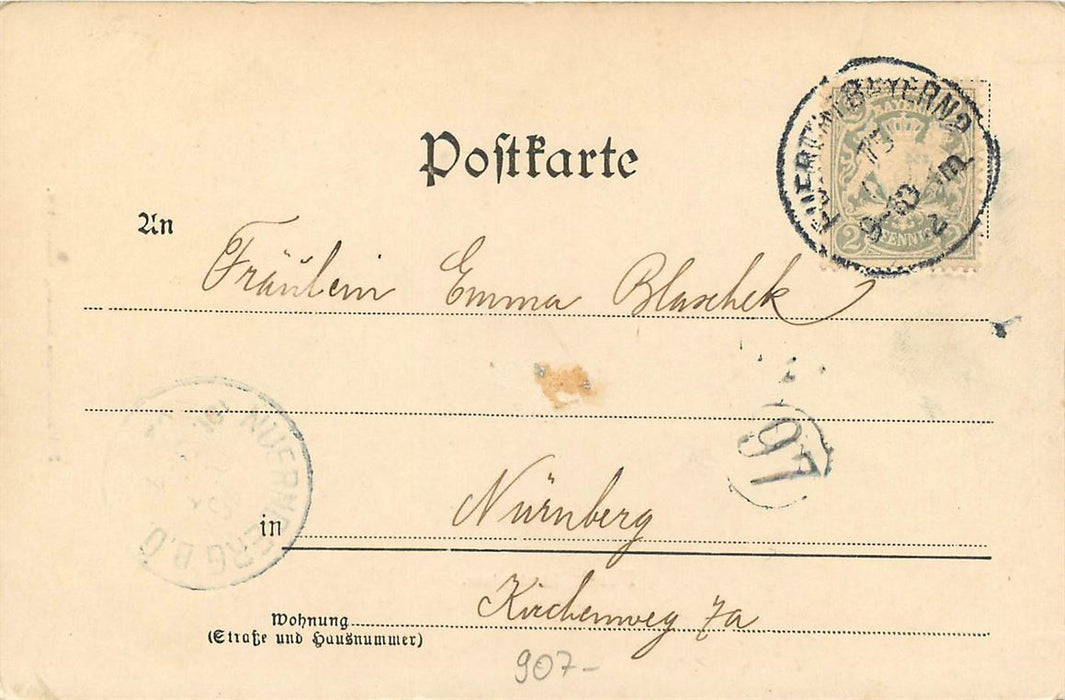 Postkarte
An
Fräulein Emma Blaschek
in Nürnberg
Wohnung Kirchenweg 7a
(Straße und Hausnummer)
907-
BAYERN 2
BAYERN
2 PFENNIG
97
NUERNBERG B.O.